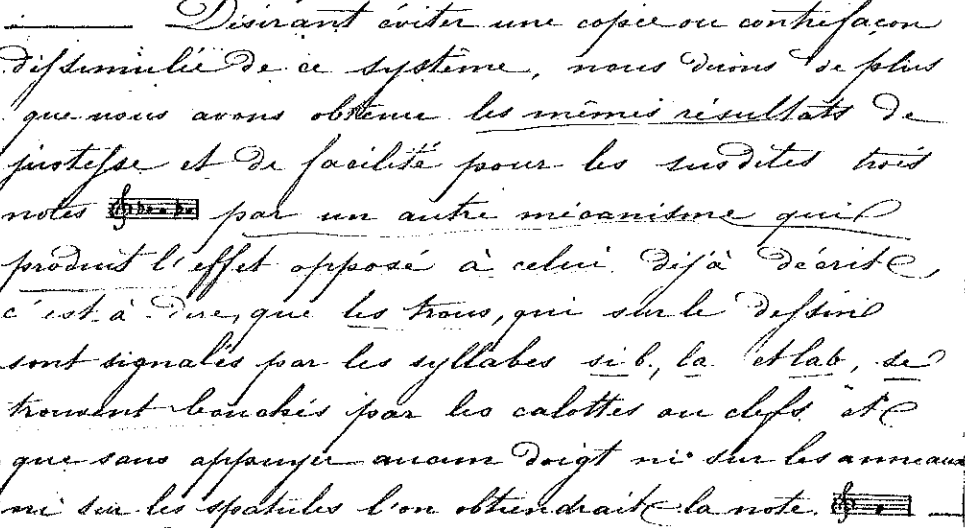 Désirant éviter une copie ou contrefaçon
dissimulée de ce système, nous dirons de plus
que nous avons obtenu les mêmes résultats de
justesse et de facilité pour les susdites trois
notes par un autre mécanisme qui
produit l'effet opposé à celui déjà décrit,
c'est-à-dire, que les trous, qui sur le dessin
sont signalés par les syllabes si b, la et lab, se
trouvent bouchés par les calottes ou clefs et
que sans appuyer aucun doigt ni sur les anneaux
ni sur les spatules l'on obtiendrait la note.